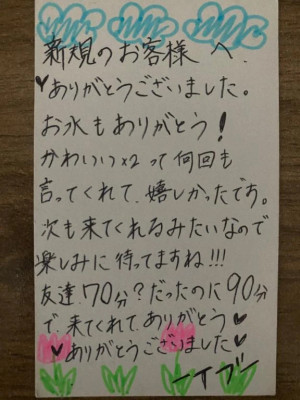 新規のお客様 へ.
♥ありがとうございました。
お水もありがとう!
かわいい×2 って何回も
言ってくれて、嬉しかったです。
次も来てくれるみたいなので
楽しみに待ってますね!!!
友達、70分?だったのに90分
で、来てくれて、ありがとう♥
♥ありがとうございました♥
ーイブー